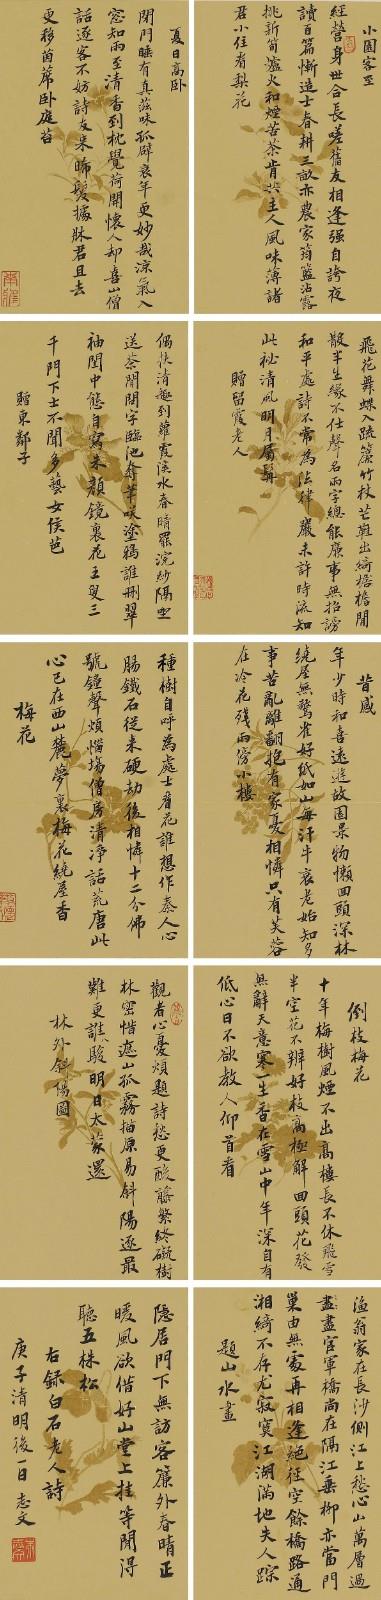 小園客至
經營身世合長嗟舊友相逢强自誇夜
讀百篇慚造士春耕三畝亦農家筠籃沾露
挑新筍爐火和煙苦茶肯共主人風味薄諸
君小住有梨花
夏日高卧
閉門睡有真滋味孤癖衰年更妙哉涼氣入
窗知雨至清香到枕覺荷開懷人却喜山僧
話逐客不妨詩友來晞髮據牀君且去
更移茵席卧庭苔
飛花舞蝶入疏簾竹杖芒鞋出綺櫩閒
散半生緣不仕聲名兩字總能廉事無招謗
和平處詩不常為法律嚴未許時流知
此秘清風明月屬髯
贈留霞老人
偶挾清趣到蘿霞溪水春晴罷浣紗隔墅
送茶閒問字臨池奪筆笑塗鴉誰刪翠
袖閨中態自寫朱顏鏡裏花王叟三
千門下士不聞多藝女侯芭
贈東鄰子
昔感
年少時和喜遠遊故園景物懶回頭深林
繞屋無驚雀好紙如山每汗牛衰老始知多
事苦亂離翻抱有家憂相憐只有芙蓉
在冷花殘雨傍小樓
種樹自呼為處士看花誰想作秦人心
腸鐵石從來硬劫後相憐十二分佛
號鐘聲煩惱場僧房清淨話荒唐此
心已在西山麓夢裏梅花繞屋香
梅花
倒枝梅花
十年梅樹風煙不出高樓長不休飛雪
半空花不辨好枝高極解回頭花發
無辭天意寒一生香在雪山中年深自有
低心日不欲教人仰首看
觀者心憂煩題詩愁更酸藤繁終礙樹
林密惜遮山孤霧描原易斜陽逐最
難更誰駿明日太蒙還
林外斜陽圖
漁翁家在長沙側江上愁心山萬層過
盡盡官軍橋尚在隔江垂柳亦當門
巢由無處再相逢絕徑空餘橋路通
湘綺不存尤寂寞江湖滿地夫人踪
題山水畫
隱居門下無訪客簾外春晴正
暖風欲借好山堂上挂等閒得
聽五株松
右録白石老人詩
庚子清明後一日志文